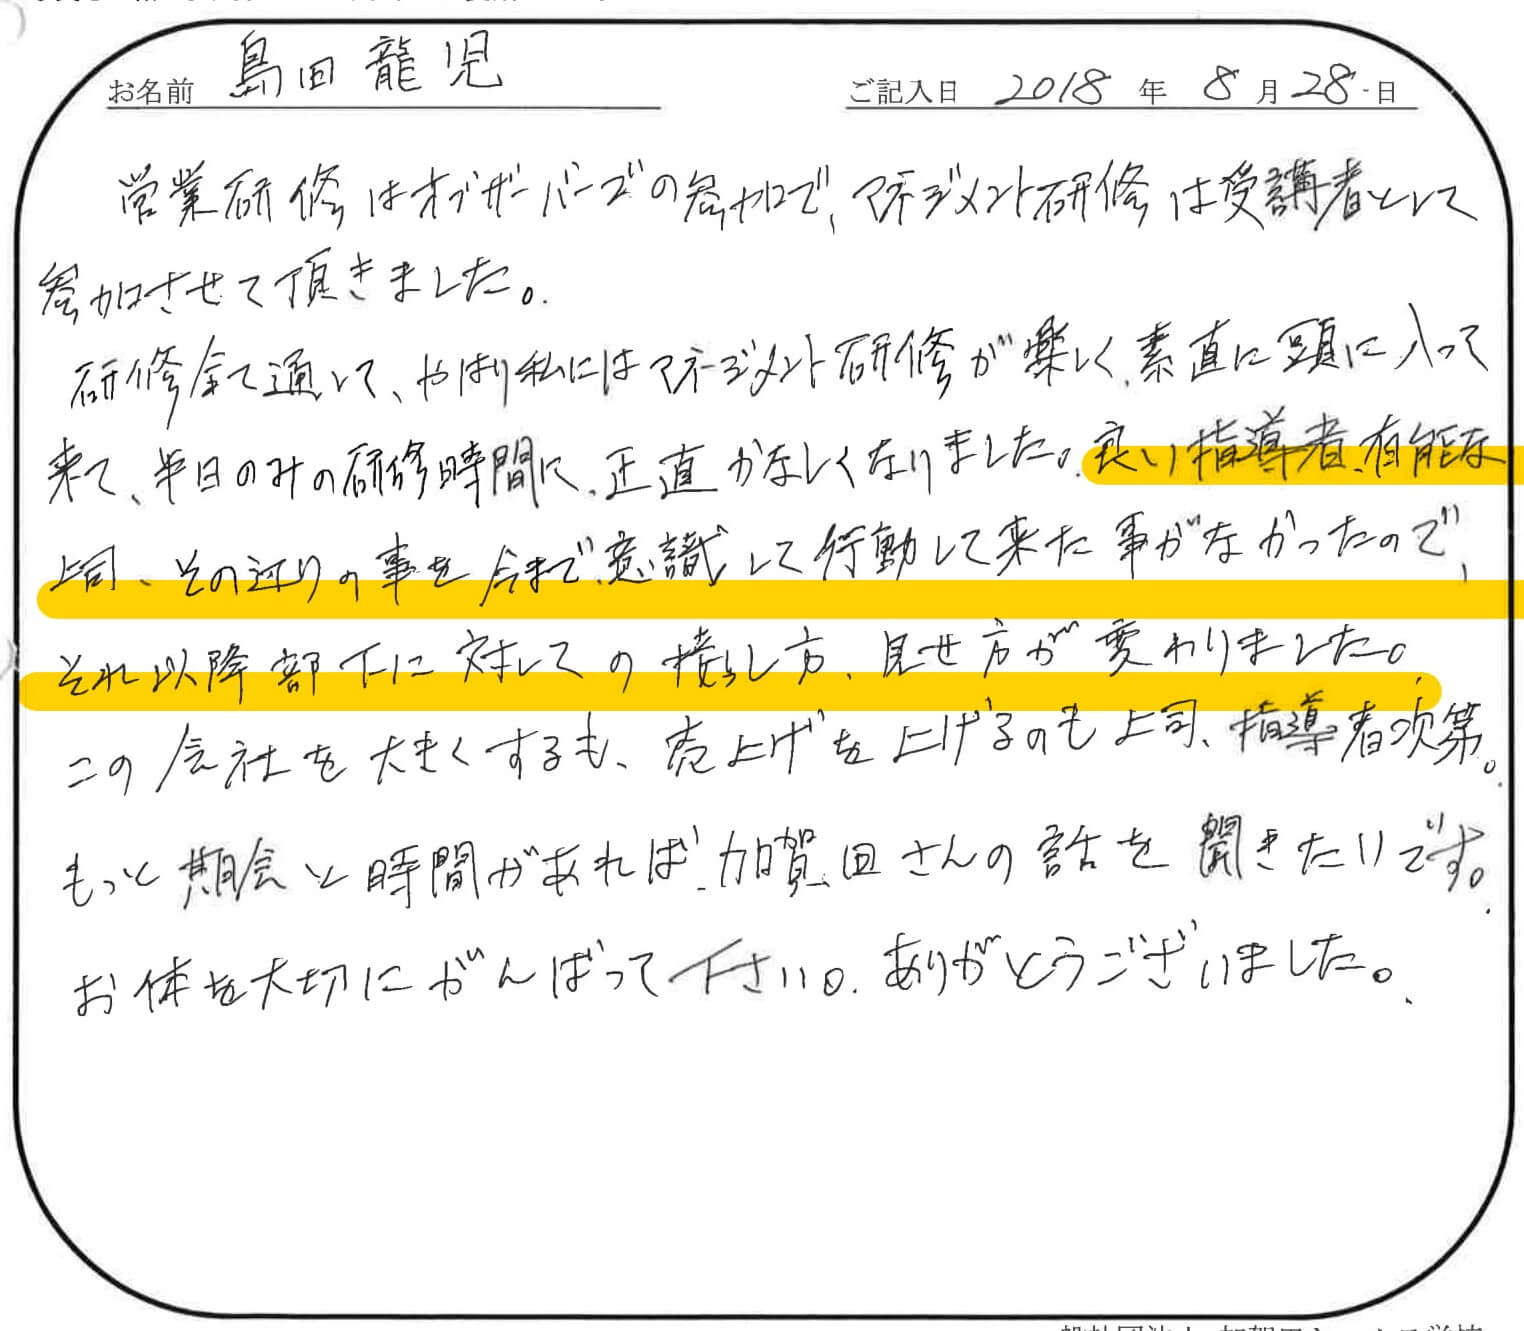 お名前 島田龍児 ご記入日 2018 年 8 月 28 日
営業研修はオブザーバーズの参加で、マネジメント研修は受講者として
参加させて頂きました。
研修全て通して、やはり私にはマネージメント研修が楽しく、素直に頭に入って
来て、半日のみの研修時間に、正直かなしくなりました。良い指導者、有能な
上司、その辺りの事を今まで意識して行動して来た事がなかったので、
それ以降部下に対しての接し方、見せ方が変わりました。
この会社を大きくするも、売上げを上げるのも上司、指導者次第。
もっと期会と時間があれば、加賀田さんの話を聞きたいです。
お体を大切にがんばって下さい。ありがとうございました。